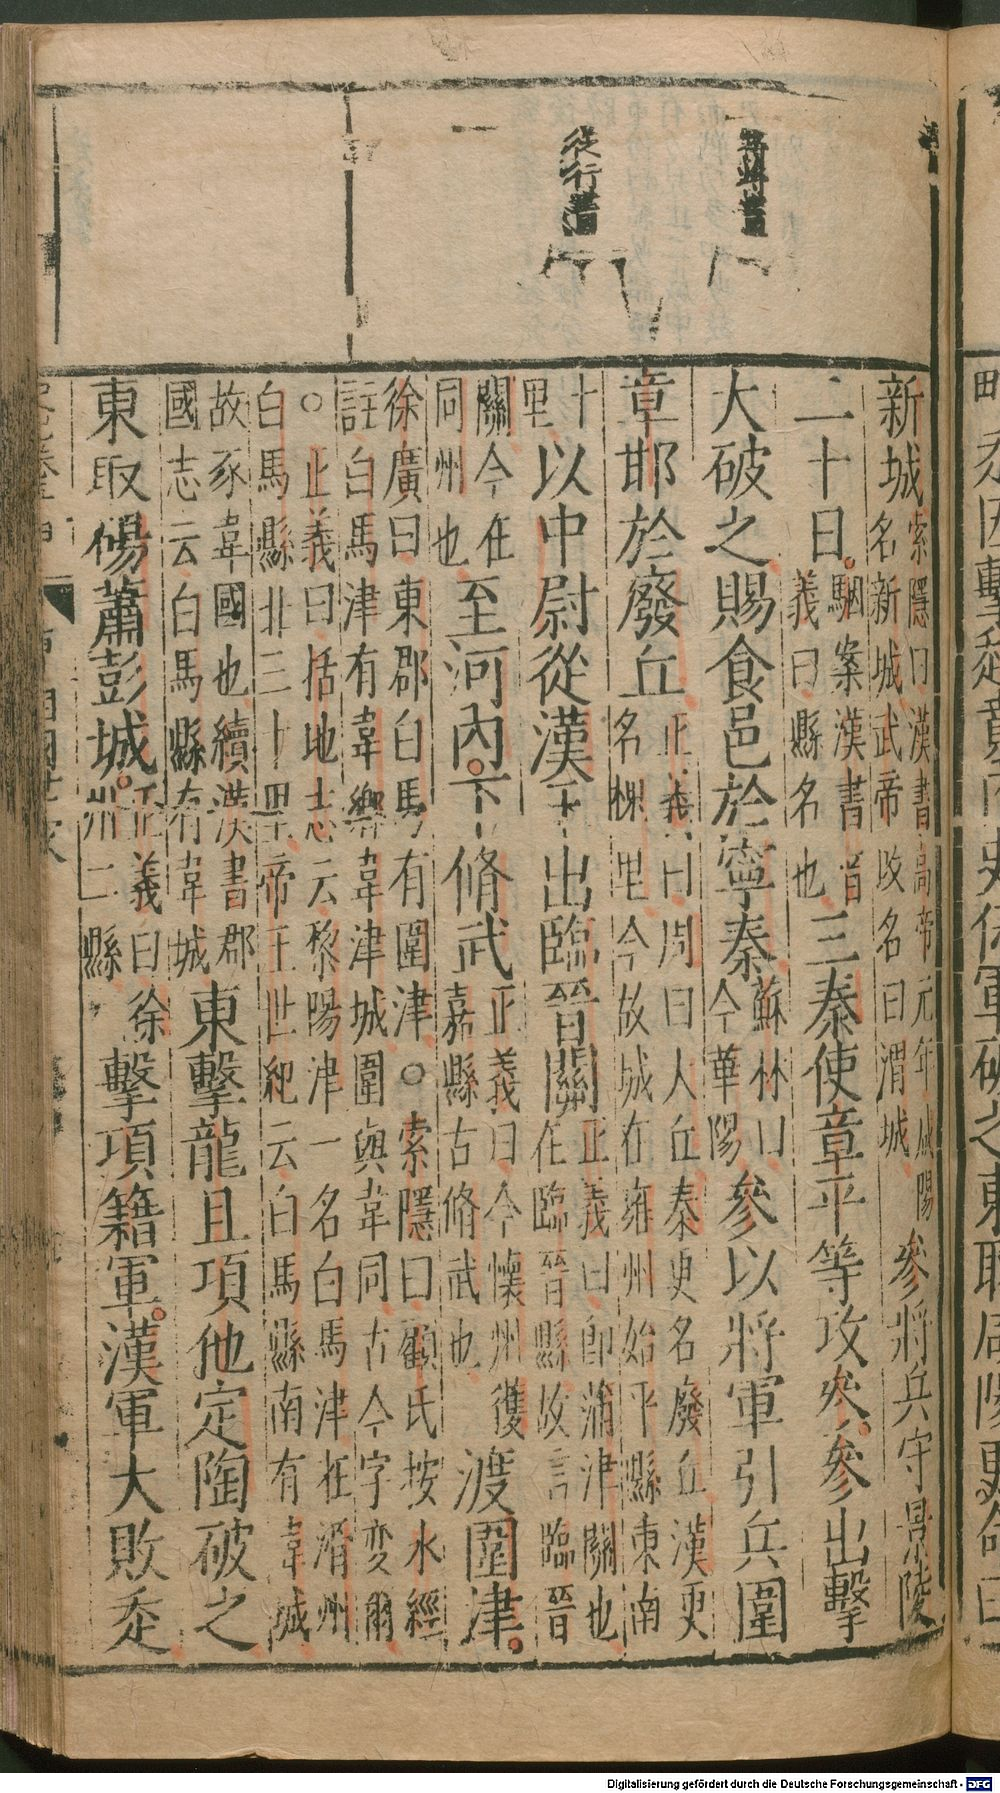 新城索隱曰漢書高帝元年咸陽名新城武帝改名曰渭城參將兵守景陵
二十日駰案漢書音義曰縣名也三秦使章平等攻參參出擊
大破之賜食邑於寧秦蘇林曰今華陽參以將軍引兵圍
章邯於廢丘正義曰周曰人丘秦更名廢丘漢更名槐里今故城在雍州始平縣東南
十里以中尉從漢王出臨晉關正義曰即蒲津關也在臨晉縣故言臨晉
關今在同州也至河內下脩武正義曰今懷州獲嘉縣古脩武也渡圍津
徐廣曰東郡白馬有圍津○索隱曰顧氏按水經註白馬津有韋鄉韋津城圍與韋同古今字變爾
○正義曰括地志云黎陽津一名白馬津在滑州白馬縣北三十里帝王世紀云白馬縣南有韋城
故豕韋國也續漢書郡國志云白馬縣有韋城東擊龍且項他定陶破之
東取碭蕭彭城正義曰徐州二縣擊項籍軍漢軍大敗走
Digitalisierung gefördert durch die Deutsche Forschungsgemeinschaft - DFG